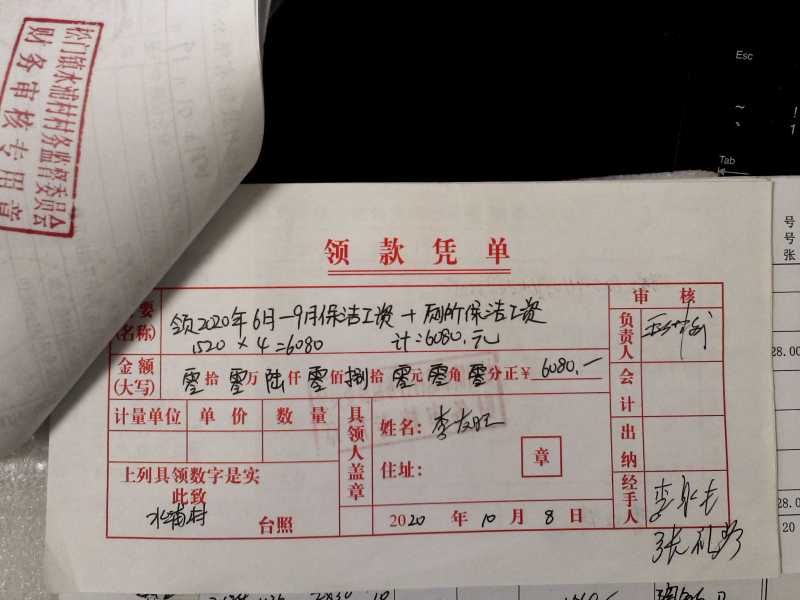 松门镇水浦村村务监督委员会
财务审核专用章
Esc
~
!
1
Tab
号
号
张
28.00
28.0
20
领款凭单
要
(名称)
领2020年6月-9月保洁工资+厕所保洁工资
1520×4=6080 计:6080.元
审核
负责人
金额
(大写)
零拾零万陆仟零佰捌拾零元零角零分正¥6080.一
会计
计量单位 单价 数量
具领人盖章
姓名:李友旺
住址:
章
出纳
上列具领数字是实
此致
水浦村 台照
2020年10月8日
经手人